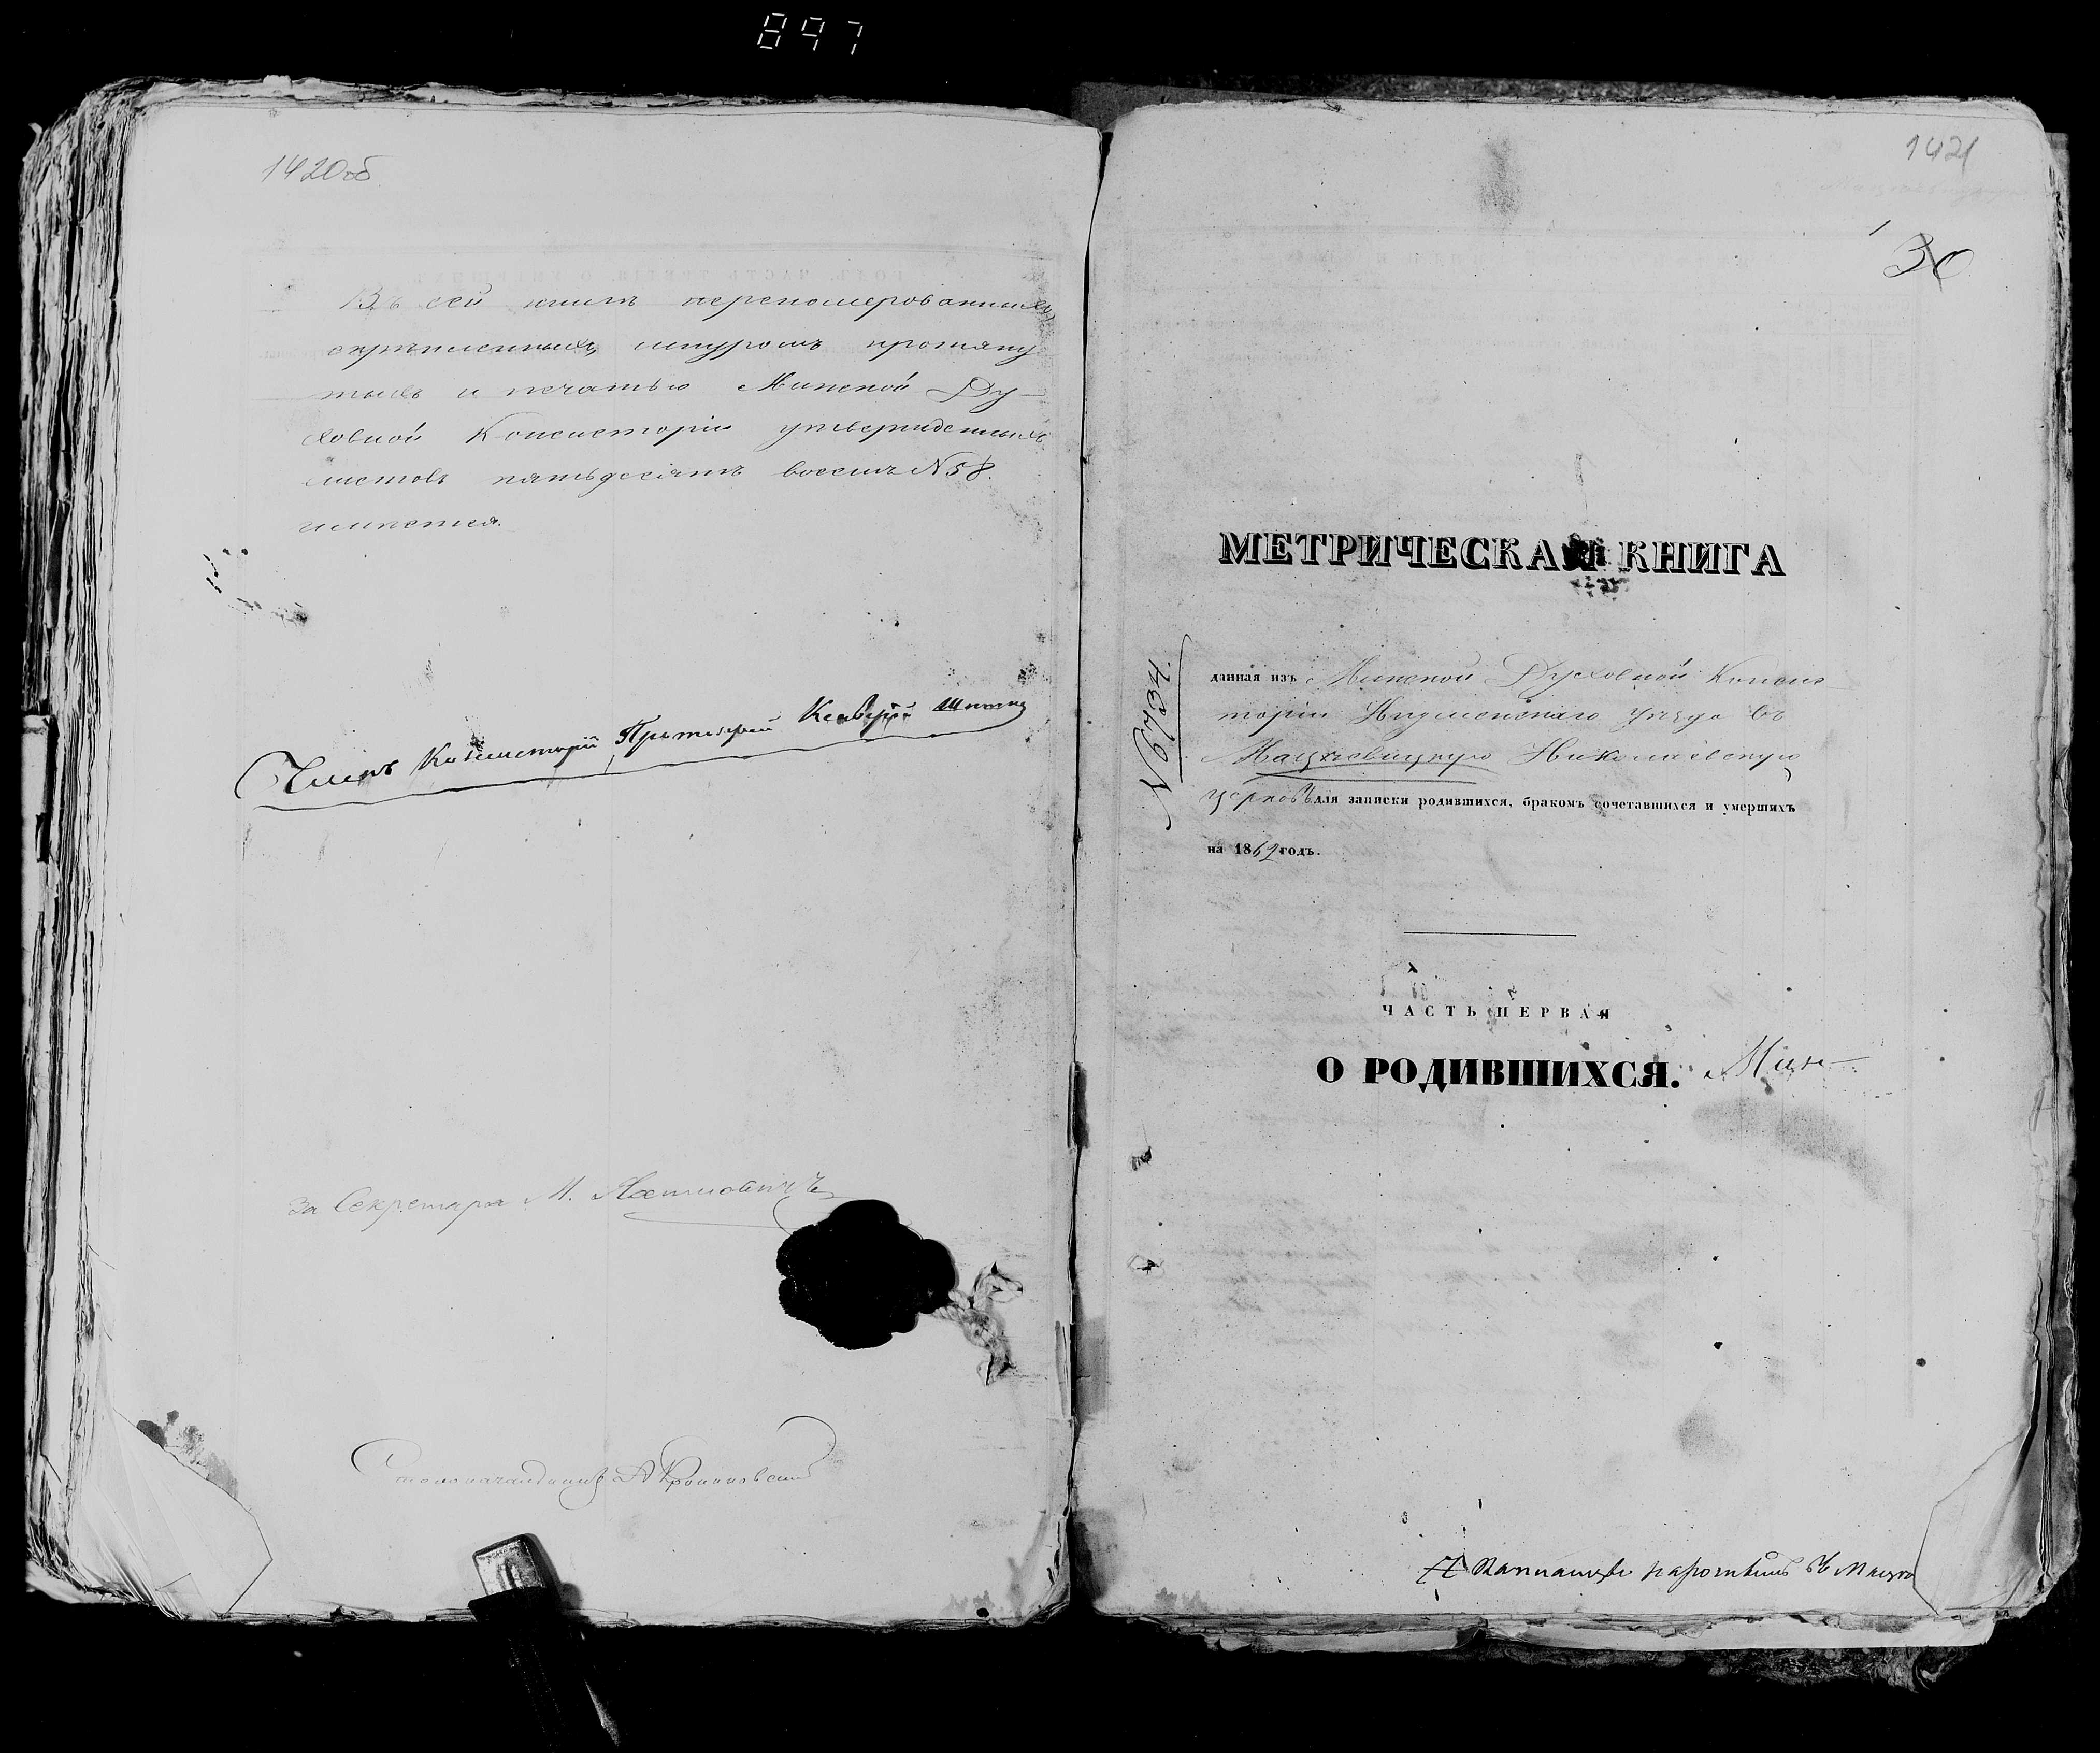 897
1420об
Въ сей книгѣ переномерованныхъ,
скрѣпленныхъ, шнуромъ протяну
тыхъ и печатью Минской Ду-
ховной Консисторіи утвержденныхъ
листовъ пятьдесятъ восемь N 58.
имѣется.
Членъ Консисторіи Протоіерей
За Секретаря М.
Столоначальникъ А
1421
30
МЕТРИЧЕСКАЯ КНИГА
N 6734.
данная изъ Минской Духовной Консис-
торіи Игуменскаго уѣзда въ
Мацкевицкую Николаевскую
церковь для записки родившихся, бракомъ сочетавшихся и умершихъ
на 1862 годъ.
ЧАСТЬ ПЕРВАЯ
О РОДИВШИХСЯ.